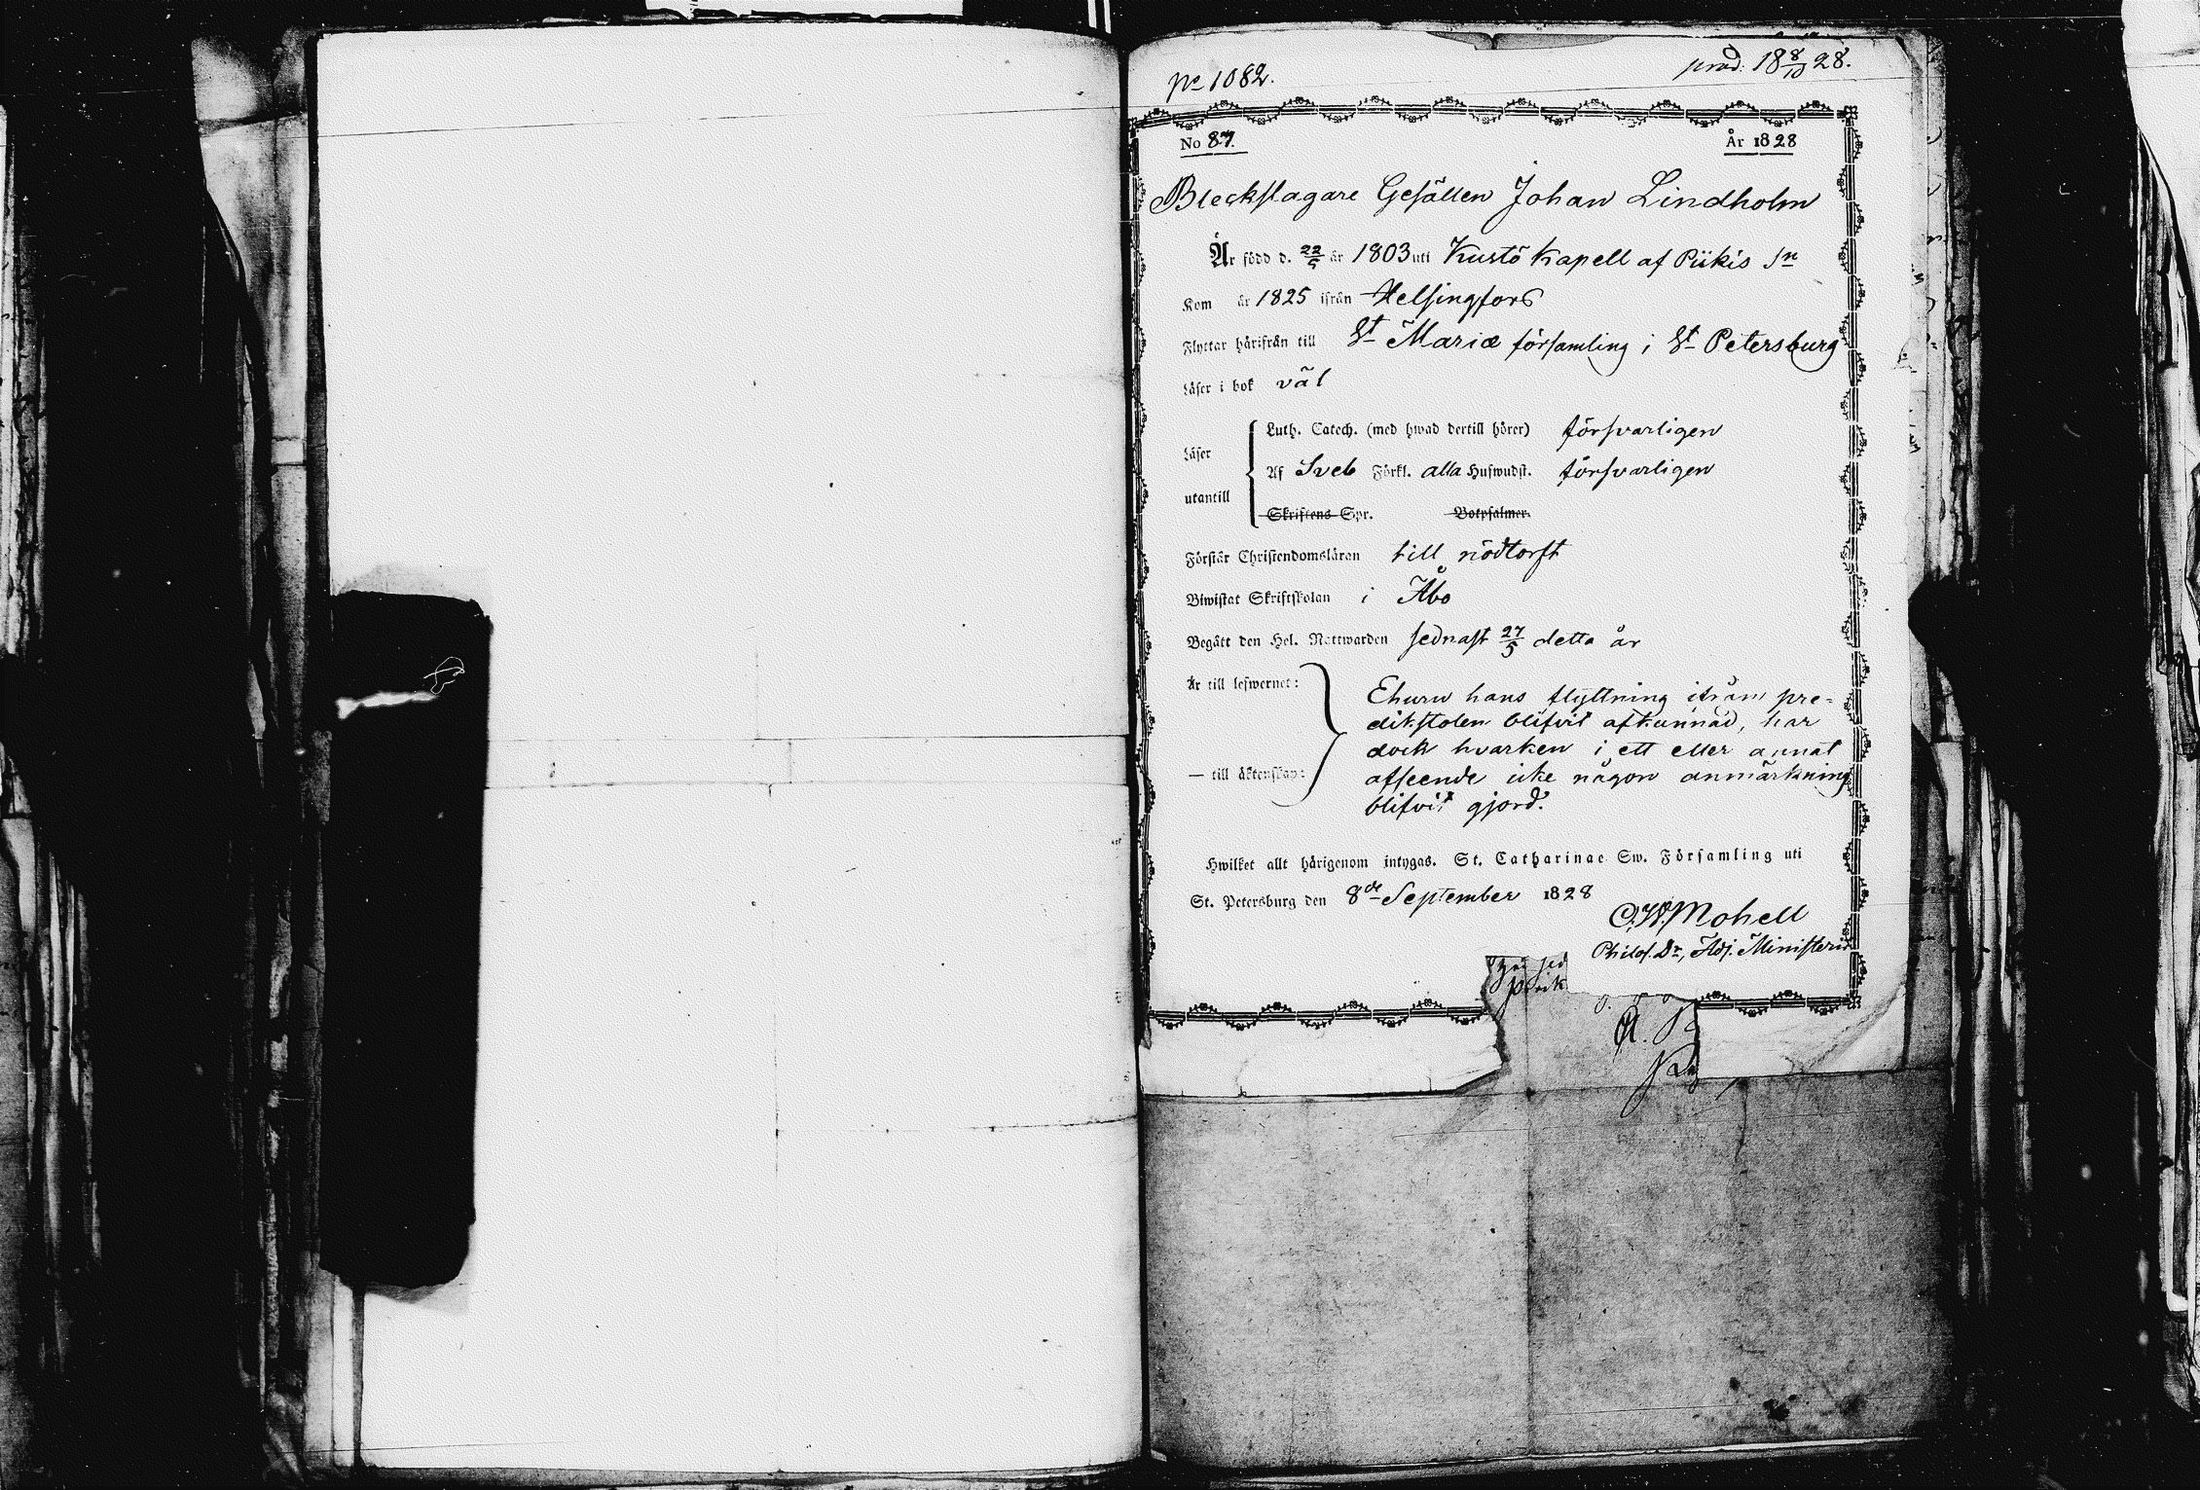 No 1082.
prod: 18 8/10 28.
No 87.
År 1828
Bleckslagare Gesällen Johan Lindholm
Är född d. 22/5 år 1803 uti Kustö Kapell af Piikis Sn
Kom år 1825 ifrån Helsingfors
Flyttar härifrån till St Mariæ församling i St Petersburg
Läser i bok väl
Luth. Catech. (med hwad dertill hörer) försvarligen
Läser
Af Sveb Förkl. alla Hufwudst. försvarligen
utantill
Skriftens Spr. Botpsalmer.
Förstår Christendomsläran till nödtorft
Biwistat Skriftskolan i Åbo
Begått den Hel. Nattwarden sednast 27/5 detta år
Är till lefwernet:
Ehuru hans flyttning ifrån pre-
dikstolen blifvit afkunnad, har
dock hvarken i ett eller annat
— till äktenskap:
afseende icke någon anmärkning
blifvit gjord.
Hwilket allt härigenom intygas. St. Catharinae Sw. Församling uti
St. Petersburg den 8de September 1828
C.W. Mohell
Philos. Dr, Adj. Ministerii